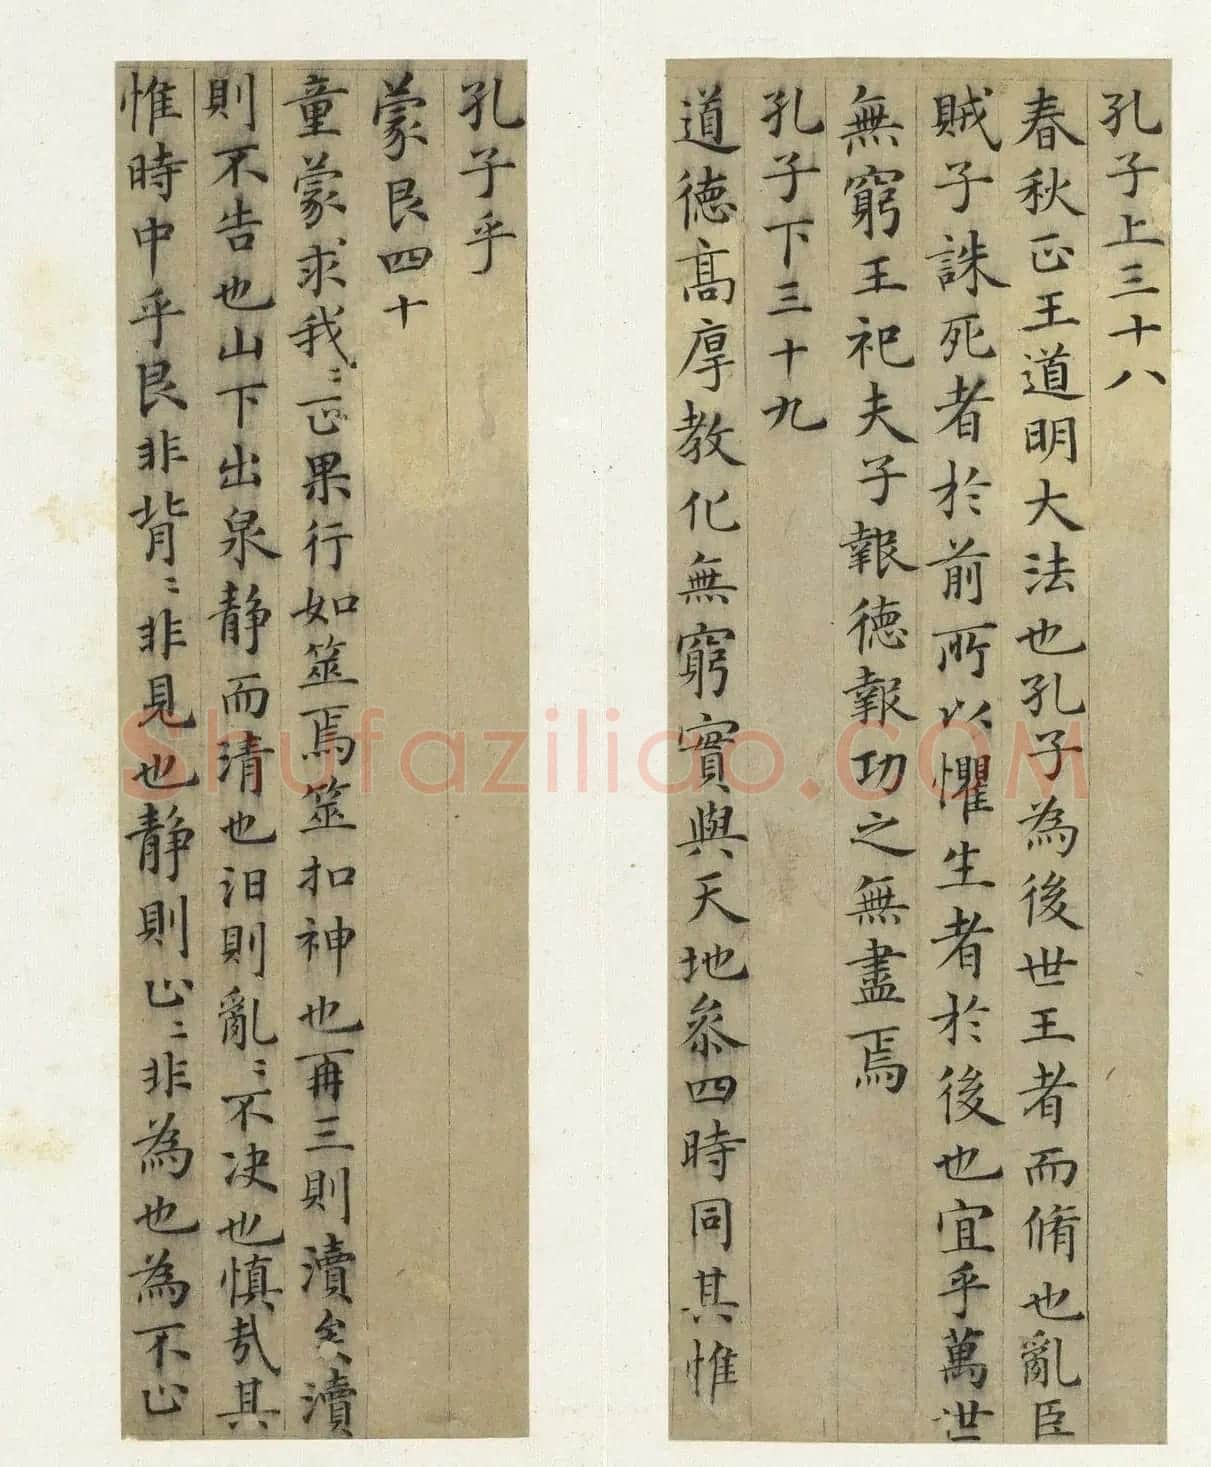 孔子上三十八
春秋正王道明大法也孔子為後世王者而脩也亂臣
賊子誅死者於前所以懼生者於後也宜乎萬世
無窮王祀夫子報德報功之無盡焉
孔子下三十九
道德高厚教化無窮實與天地叅四時同其惟
孔子乎
蒙艮四十
童蒙求我〻正果行如筮焉筮扣神也再三則瀆矣瀆
則不告也山下出泉静而清也汩則亂〻不决也慎㢤其
惟時中乎艮非背〻非見也静則止〻非為也為不止
Shufaziliao.COM